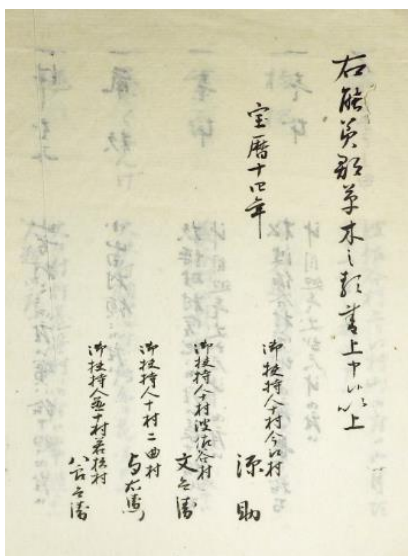 右能美郡草木之類書上申候以上
宝暦十四年
御扶持人十村今江村
源助
御扶持人十村波佐谷村
文兵衛
御扶持人十村二曲村
与右衛門
御扶持人並十村若杉村